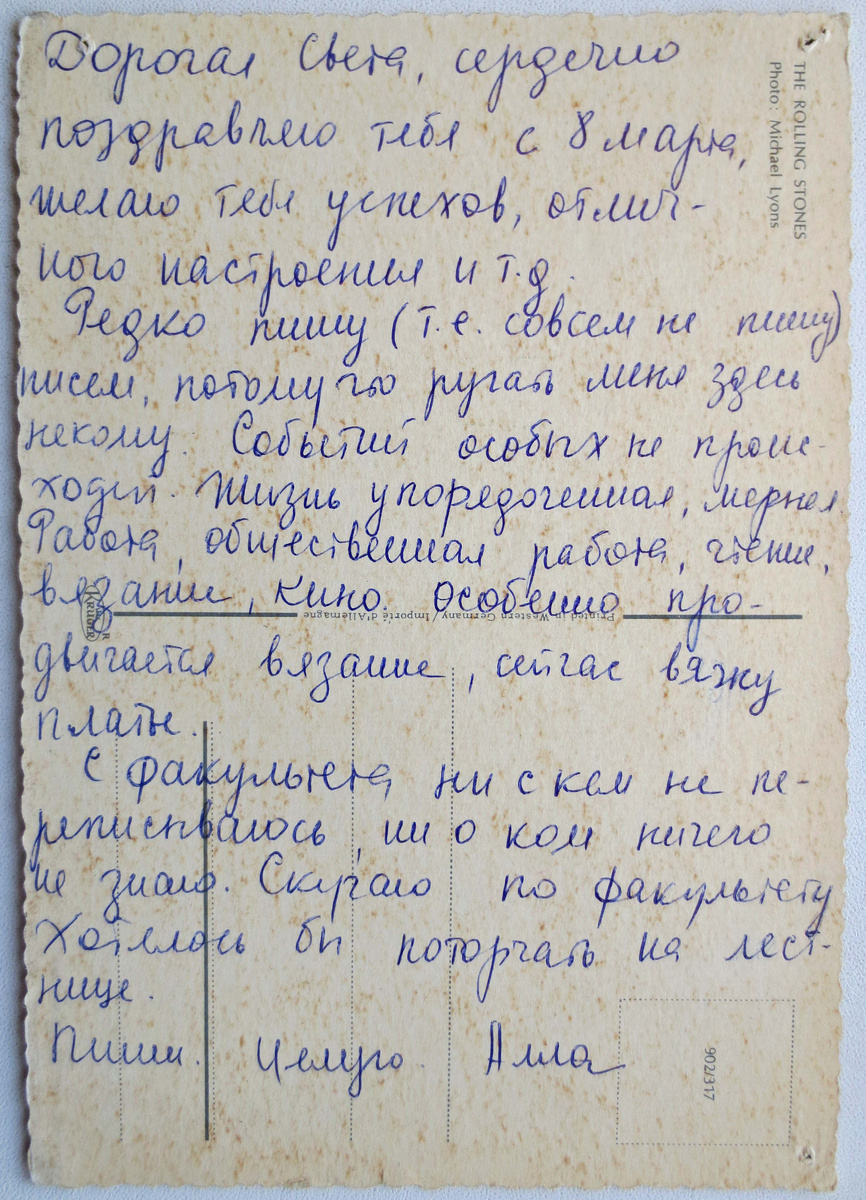 Дорогая Света, сердечно
поздравляю тебя с 8 марта,
желаю тебе успехов, отлич-
ного настроения и т.д.
Редко пишу (т.е. совсем не пишу)
писем, потому что ругать меня здесь
некому. Событий особых не проис-
ходит. Жизнь упорядоченная, мерная.
Работа, общественная работа, чтение,
вязание, кино. Особенно про-
двигается вязание, сейчас вяжу
платье.
С факультета ни с кем не пе-
реписываюсь, ни о ком ничего
не знаю. Скучаю по факультету
Хотелось бы поторчать на лест-
нице.
Пиши. Целую. Алла
THE ROLLING STONES
Photo: Michael Lyons
KRÜGER
Printed in Western Germany / Importé d'Allemagne
902/317